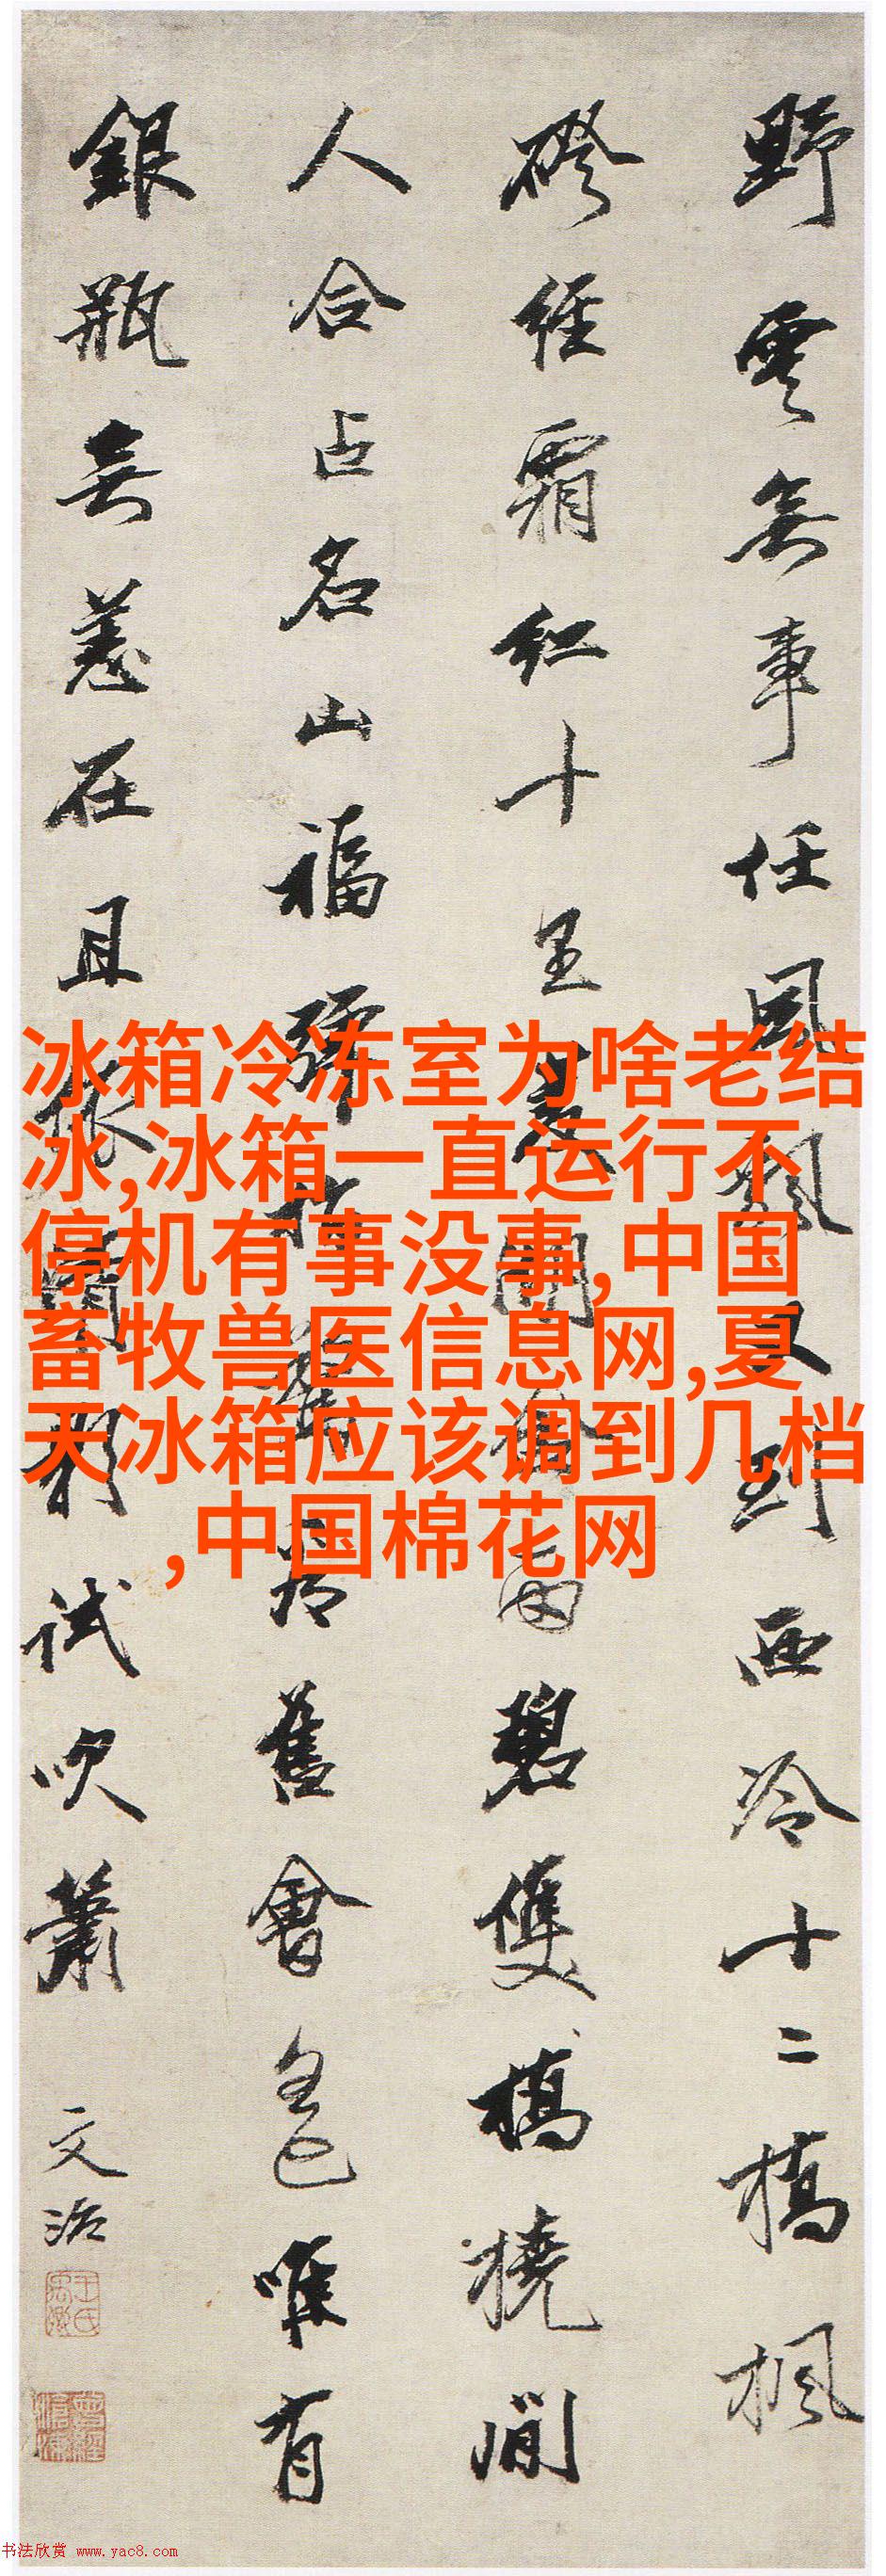 野雲無事任風飄又到西冷十二橋楓
磴經霜紅十里含雨碧雙橋橈間
人合占名山福彈指舊會唯有
銀瓶無恙在且依影試吹蕭
文治
王氏禹卿
冰箱冷冻室为啥老结
冰,冰箱一直运行不
停机有事没事,中国
畜牧兽医信息网,夏
天冰箱应该调到几档
,中国棉花网
书法欣赏 www.yac8.com